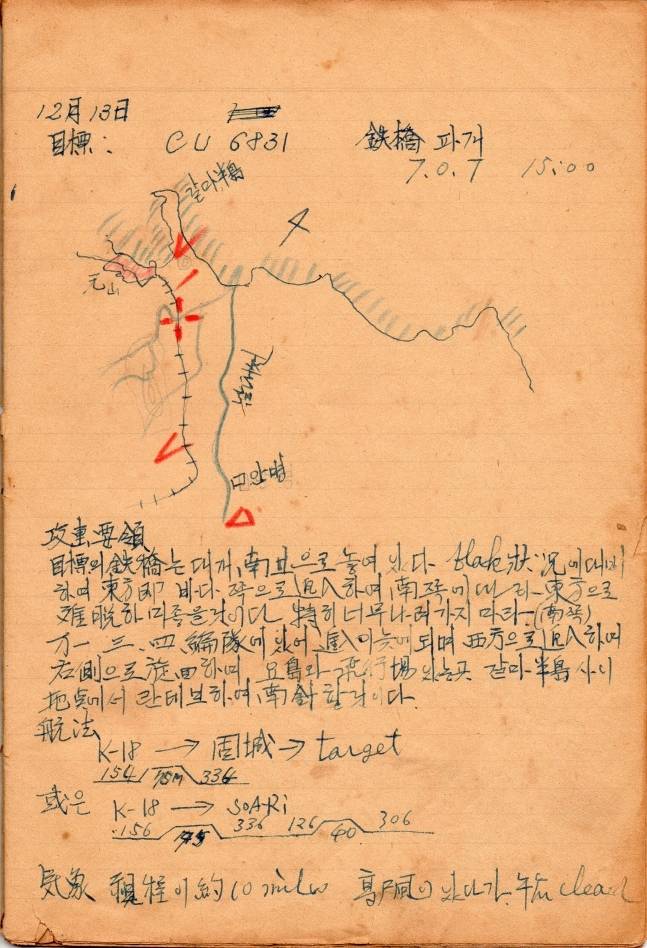 12月13日
目標: CU 6831 鉄橋 파괴
7.0.7 15:00
갈마半島
元山
안변
攻擊要領
目標의 鉄橋는 대개, 南北으로 놓여 있다- flak 狀況에 대비
하여 東方 即 바다 쪽으로 进入하여, 南쪽에 東方으로
離脫하 것이다. 特히 너무 내려가지 마라- (南쪽)
万一 三, 四 編隊에 있어 进入이 늦게 되며 西方으로 进入하며
右側으로 旋回하며 豆島와 飛行場 있는 곳 갈마半島 사이
地点에서 란데브하여, 南針할 것이다.
航法
K-18 → 固城 → target
154 / 75M 336
或은 K-18 → SOARi
156 45 336 126 40 306
気象 視程이 約 10 mile 高層 이 있다가 午后 clear